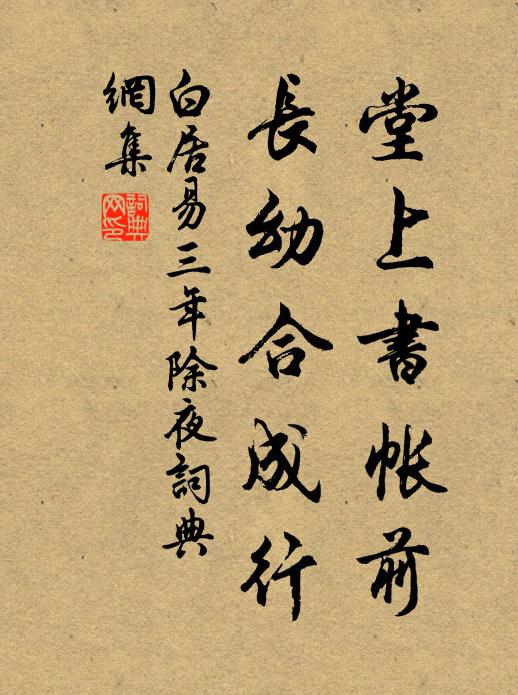 堂上書帳前
長幼合成行
白居易三年除夜詞典
網集
詞典网印